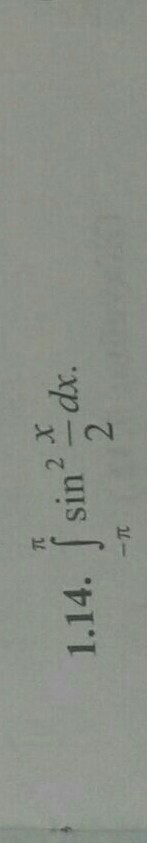 1.14. $\int_{-\pi}^{\pi} \sin^2 \frac{x}{2} dx.$